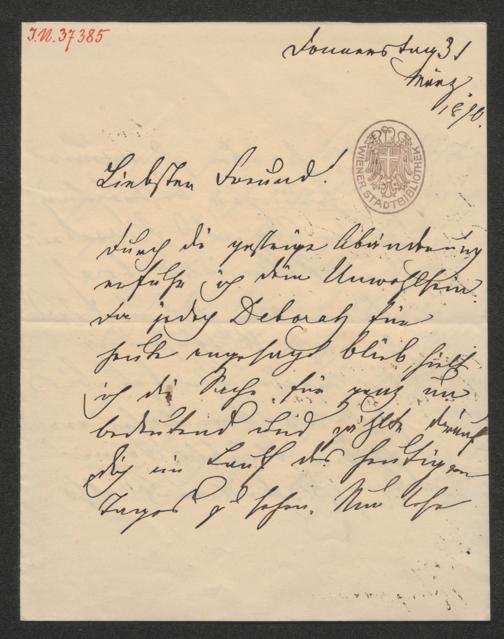 I.N. 37385
Donnerstag 31
März
1870.
WIENER STADTBIBLIOTHEK
Liebster Freund!
Durch die gestrige Abänderung
erfuhr ich dein Unwohlsein.
Da jedoch Deborah für
heute angesagt blieb, hielt
ich die Sache für ganz un
bedeutend und zählte darauf
dich im Lauf des heutigen
Tages zu sehen. Nun lese